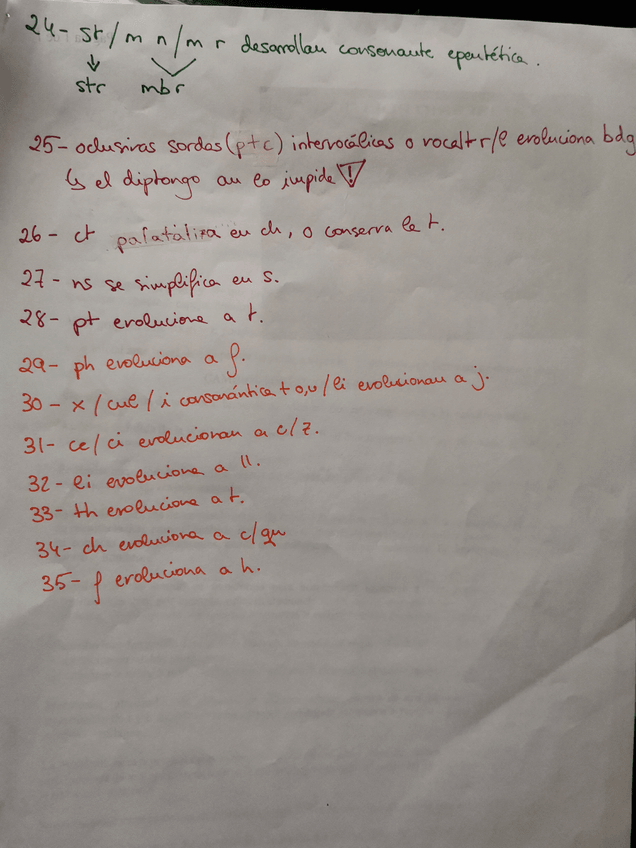 24- sr/m n/m r desarrollan consonante epentética.
↓
str mbr
25- oclusivas sordas (ptc) intervocálicas o vocal+r/l evoluciona bdg
↳ el diptongo au lo impide !
26- ct palataliza en ch, o conserva la t.
27- ns se simplifica en s.
28- pt evoluciona a t.
29- ph evoluciona a f.
30- x/cul/i consonántica + o,u/li evolucionan a j.
31- ce/ci evolucionan a c/z.
32- li evoluciona a ll.
33- th evoluciona a t.
34- ch evoluciona a c/qu
35- f evoluciona a h.